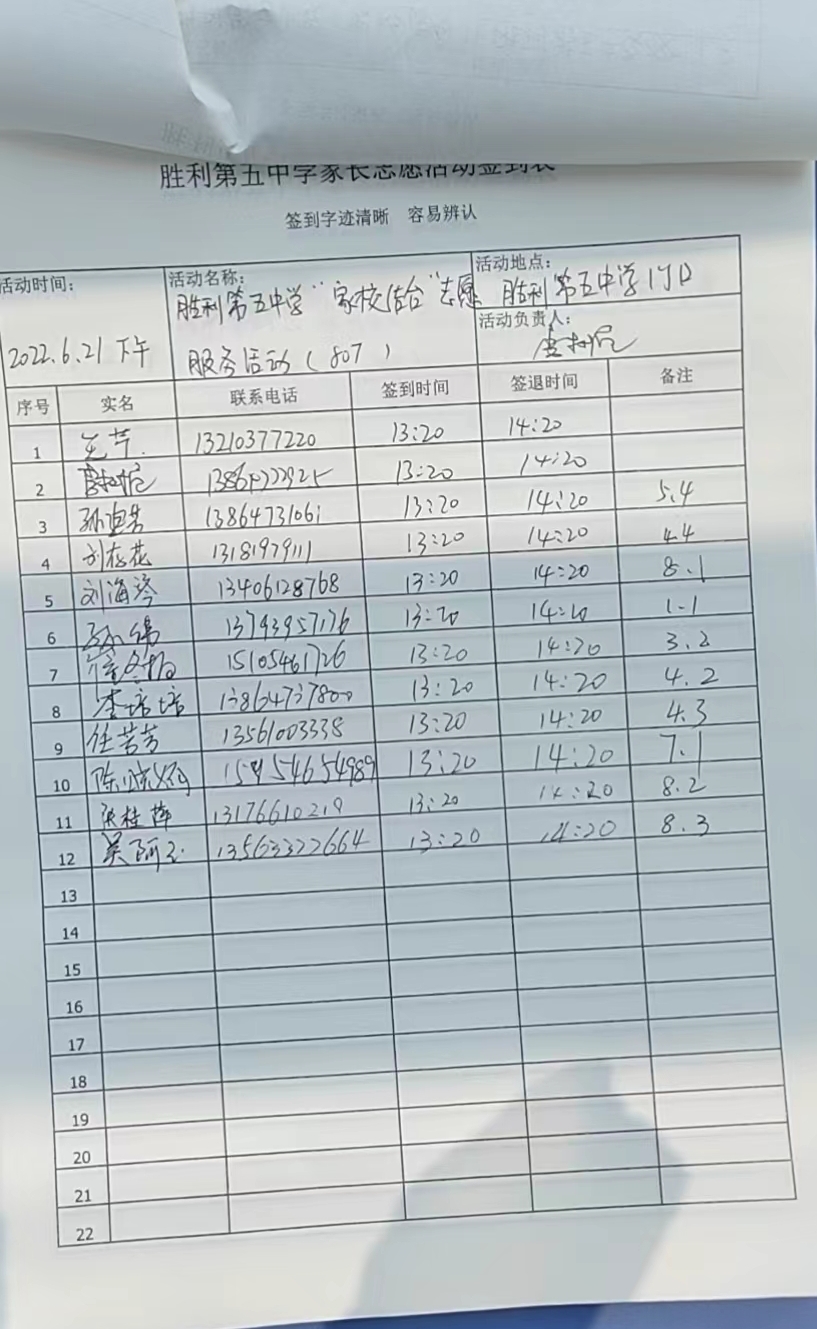 胜利第五中学家长志愿活动签到表
签到字迹清晰 容易辨认
活动时间: 活动名称: 活动地点:
胜利第五中学“家校结合”志愿 胜利第五中学门口
活动负责人:
2022.6.21下午 服务活动(807)
序号 实名 联系电话 签到时间 签退时间 备注
1 13210377220 13:20 14:20
2 13:20 14:20
3 13864731061 13:20 14:20 5.4
4 刘存花 13181979111 13:20 14:20 4.4
5 刘海琴 13406128768 13:20 14:20 8.1
6 13793957176 13:20 14:20 1.1
7 15105461726 13:20 14:20 3.2
8 李培培 13864737800 13:20 14:20 4.2
9 任芳芳 13561003338 13:20 14:20 4.3
10 13:20 14:20 7.1
11 张桂萍 13176610219 13:20 14:20 8.2
12 吴阿玉 13563322664 13:20 14:20 8.3
13
14
15
16
17
18
19
20
21
22